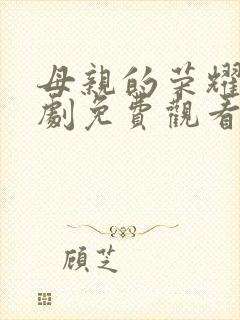 母親的荣耀
劇免費觀看
顾芝